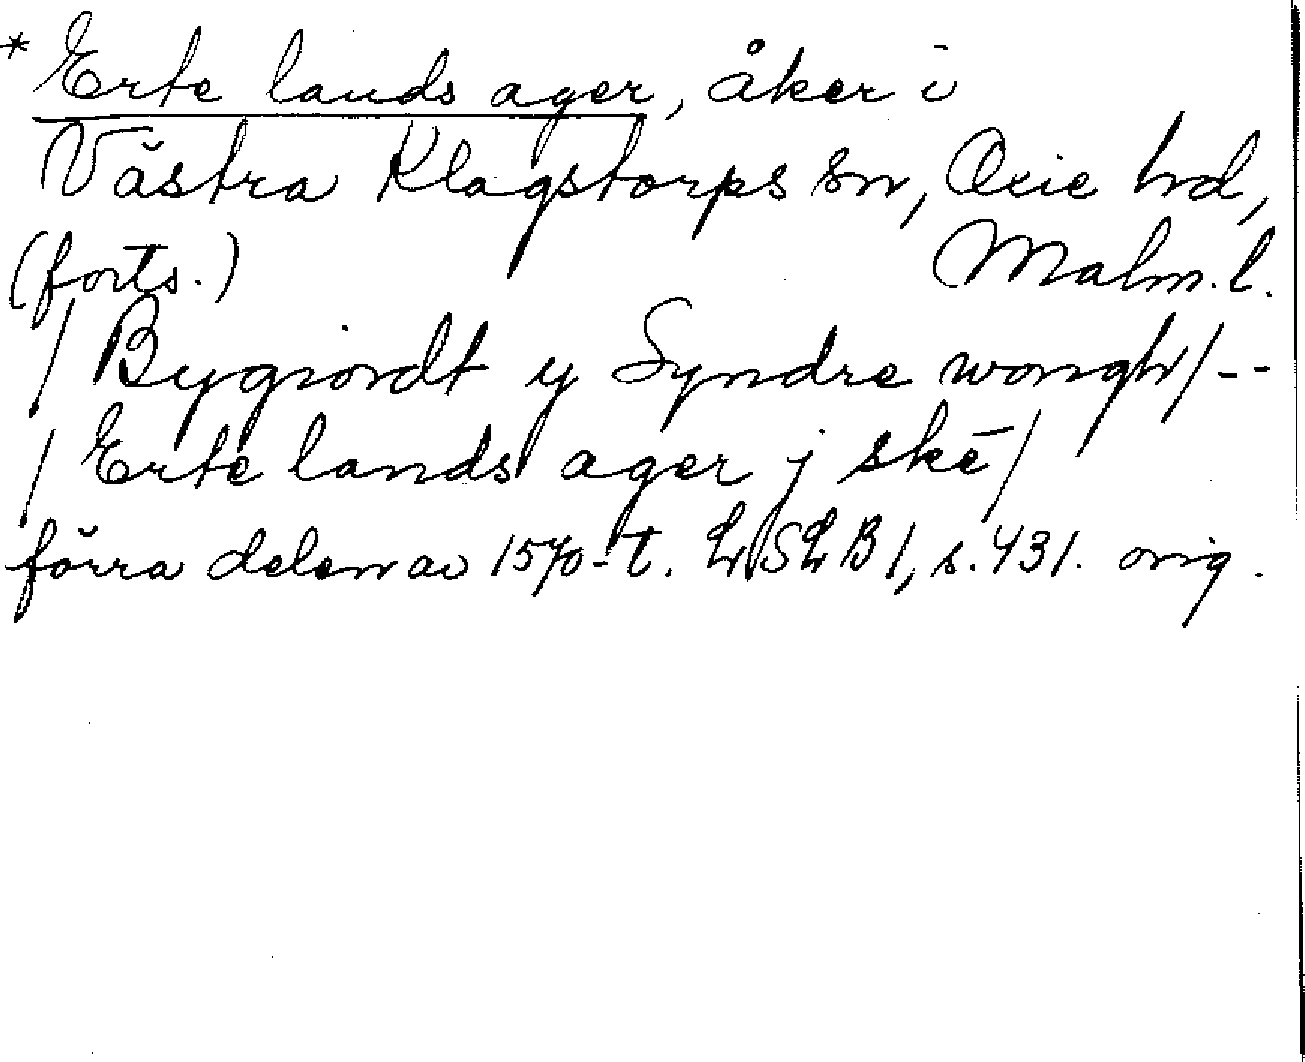 * Erte lands ager, åker i
Västra Klagstorps sn, Oxie hd,
(forts.) Malm. l.
/ Bygiordt y Syndre wongh / --
/ Erte lands ager j skē /
förra delen av 1570-t. LÆSLB 1, s. 431. orig.